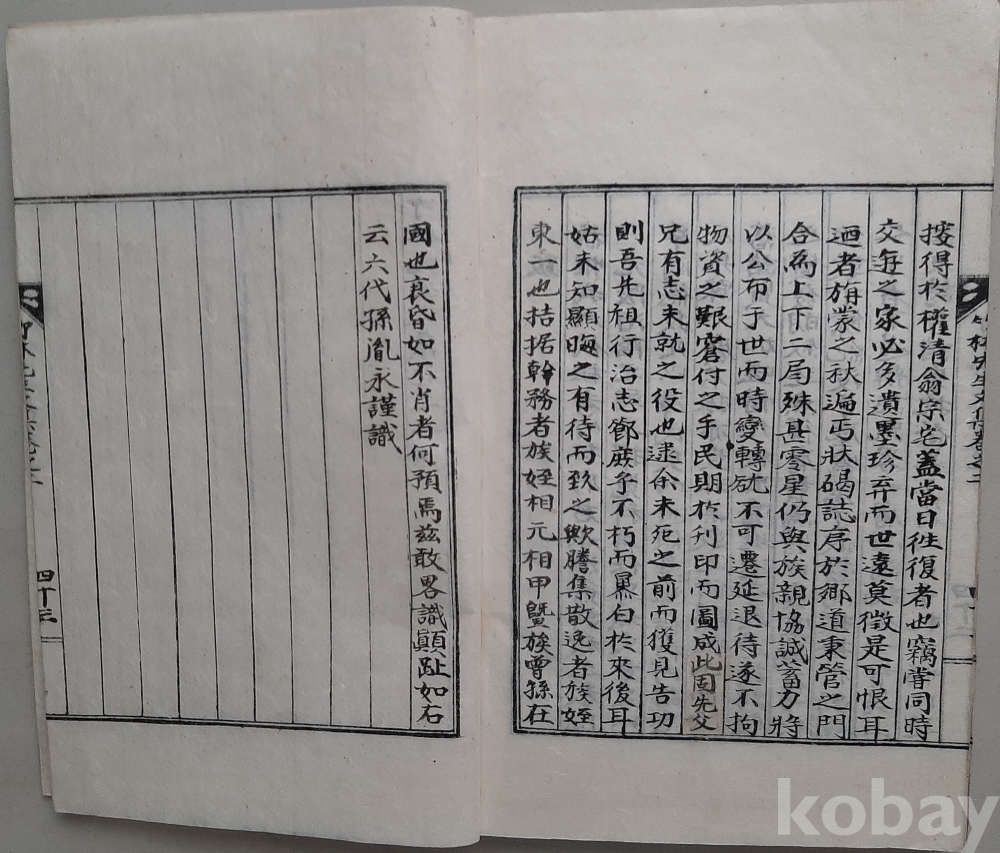 按得於權清翁宗宅蓋當日往復者也竊嘗同時
交遊之家必多遺墨珍弃而世遠莫徵是可恨耳
迺者旃蒙之秋遍丐狀碣誌序於鄉道秉管之門
合爲上下二局殊甚零星仍與族親協誠蓄力將
以公布于世而時變轉皉不可遷延退待遂不拘
物資之艱窘付之手民期於刊印而圖成此固先父
兄有志未就之役也逮余未死之前而獲見告功
則吾先祖行治志節庶乎不朽而暴白於來後耳
姑未知顯晦之有待而致之歟謄集散逸者族姪
東一也拮据幹務者族姪相元相甲曁族曾孫在
國也衰昏如不肖者何預焉玆敢畧識顚趾如右
云六代孫胤永謹識
四十三
kobay